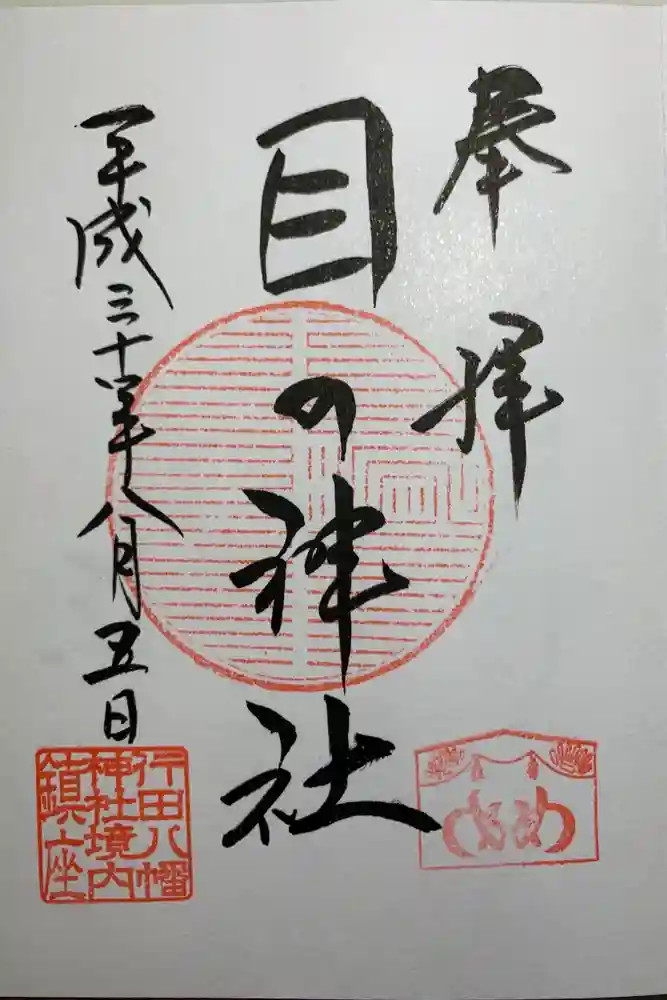 奉拝
目の神社
平成三十年八月五日
行田八幡
神社境内
鎮座
め め